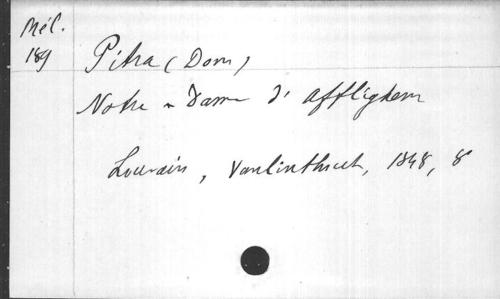 Mél.
189
Pitra (Dom)
Notre-Dame d'Afflighem
Louvain, Vanlinthout, 1848, 8